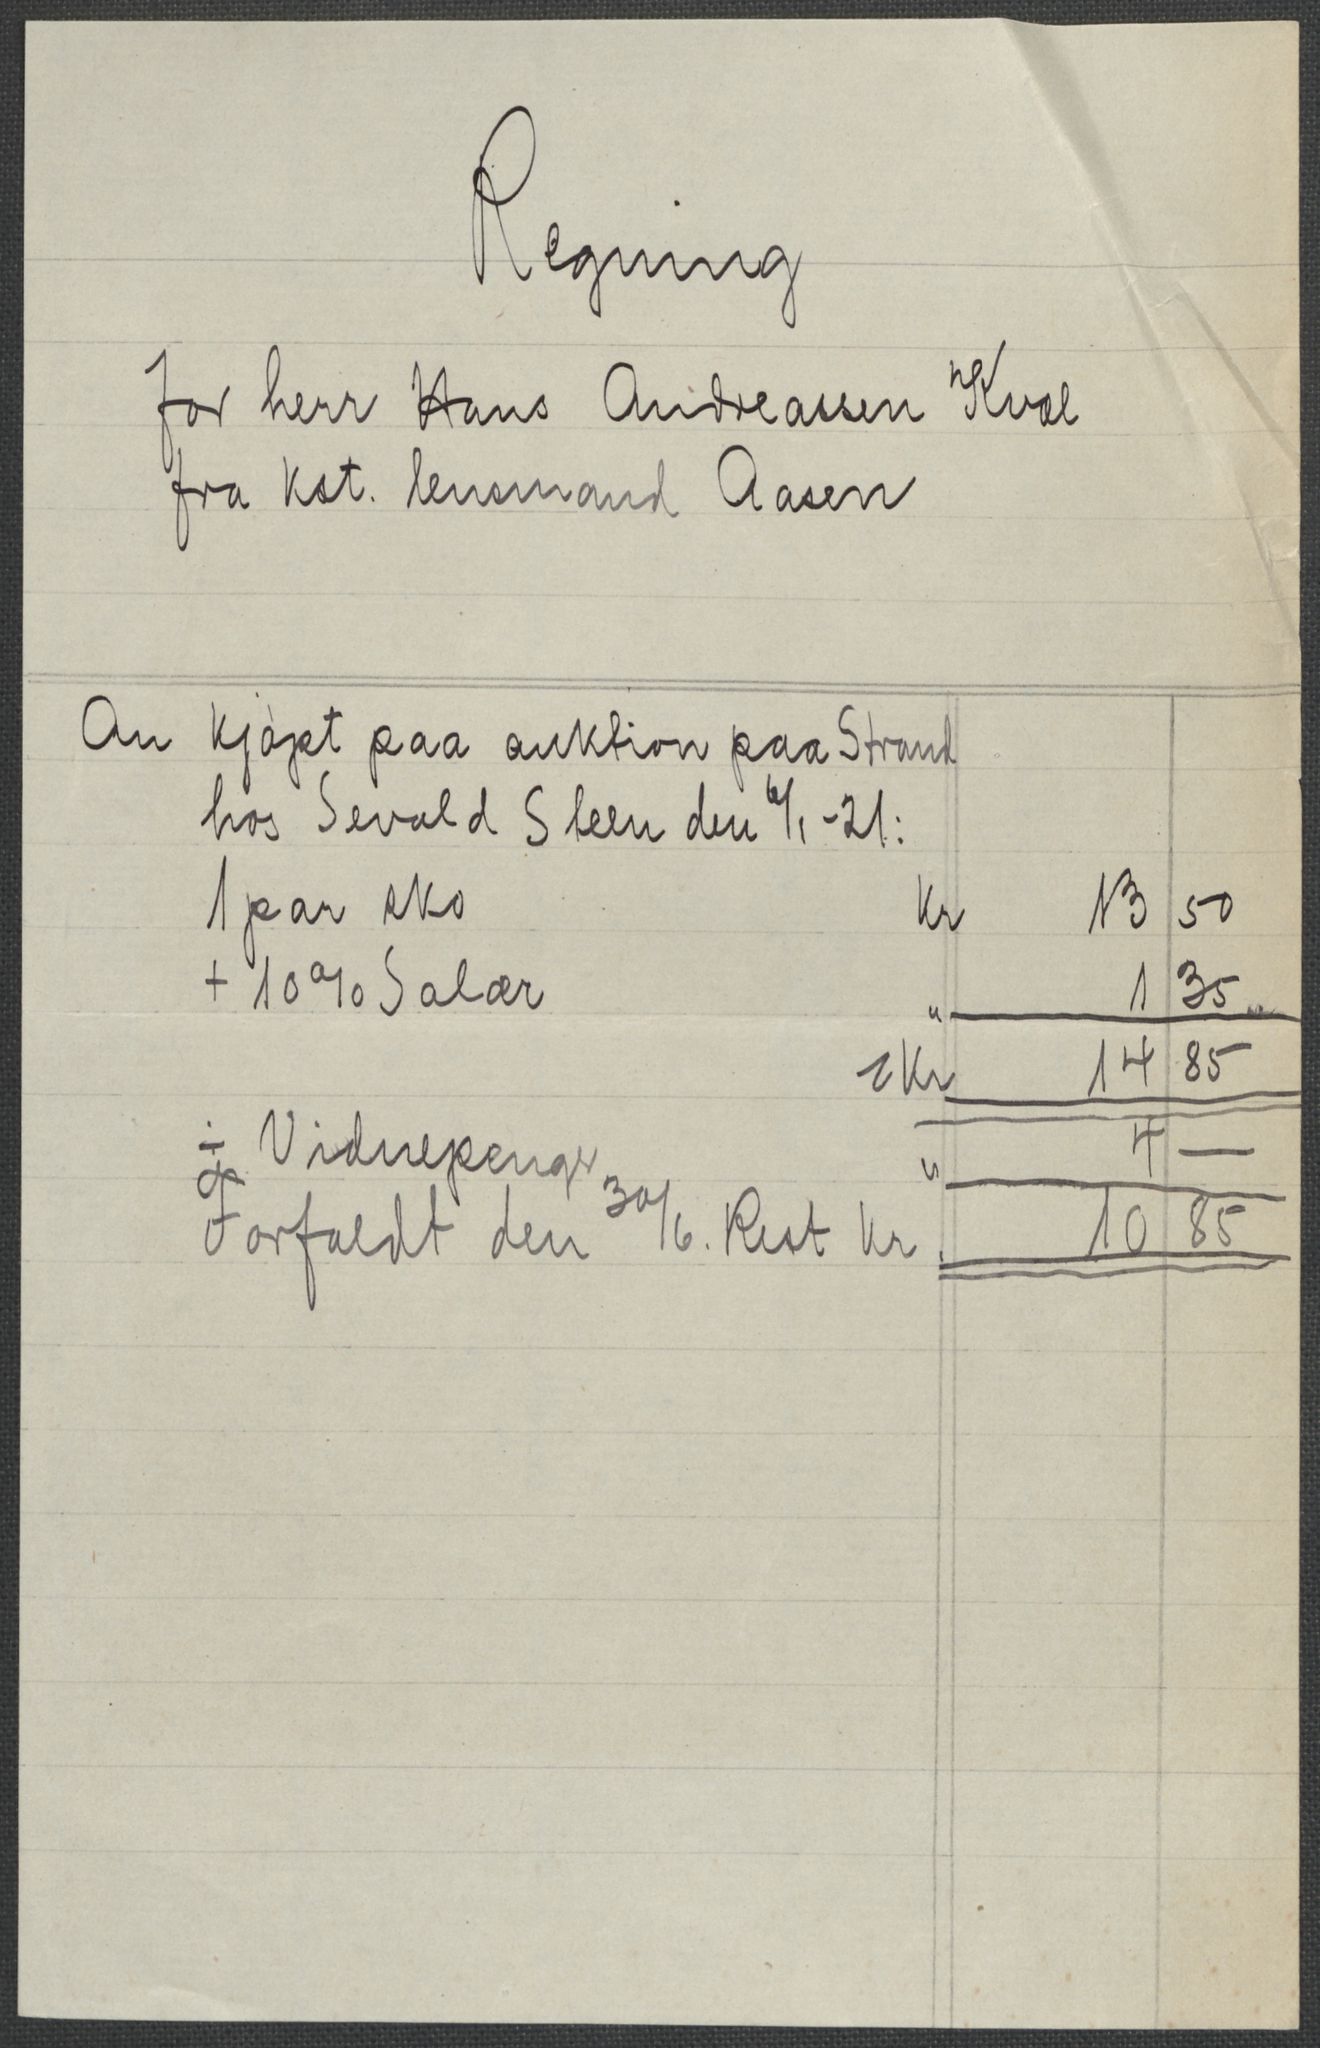 Regning
for herr Hans Andreassen Kval
fra kst. lensmand Aasen
An kjøpt paa auktion paa Strand
hos Sevald Steen den 6/1 -21:
1 par sko Kr 13 50
+ 10% Salær " 1 35
Kr 14 85
÷ Vidnepenger " 4 —
Forfaldt den 30/6. Rest Kr. 10 85